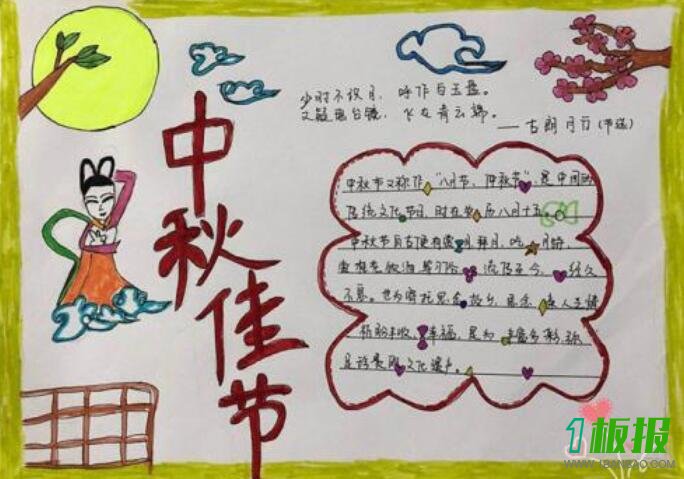 中秋佳节
少时不识月，呼作白玉盘。
又疑瑶台镜，飞在青云端。
——古朗月行(节选)
中秋节又称作“八月节，仲秋节”是中国的
传统文化节日，时在农历八月十五。
中秋节自古便有 月，拜月，吃 月饼，
赏桂花 饮酒等习俗 流传至今， 经久
不息。 为寄托思念 故乡，思念 亲人之情
祈盼丰收、幸福，是为 丰富多彩，弥
足珍贵的文化遗产。
1板报
WWW.1BANBAO.COM